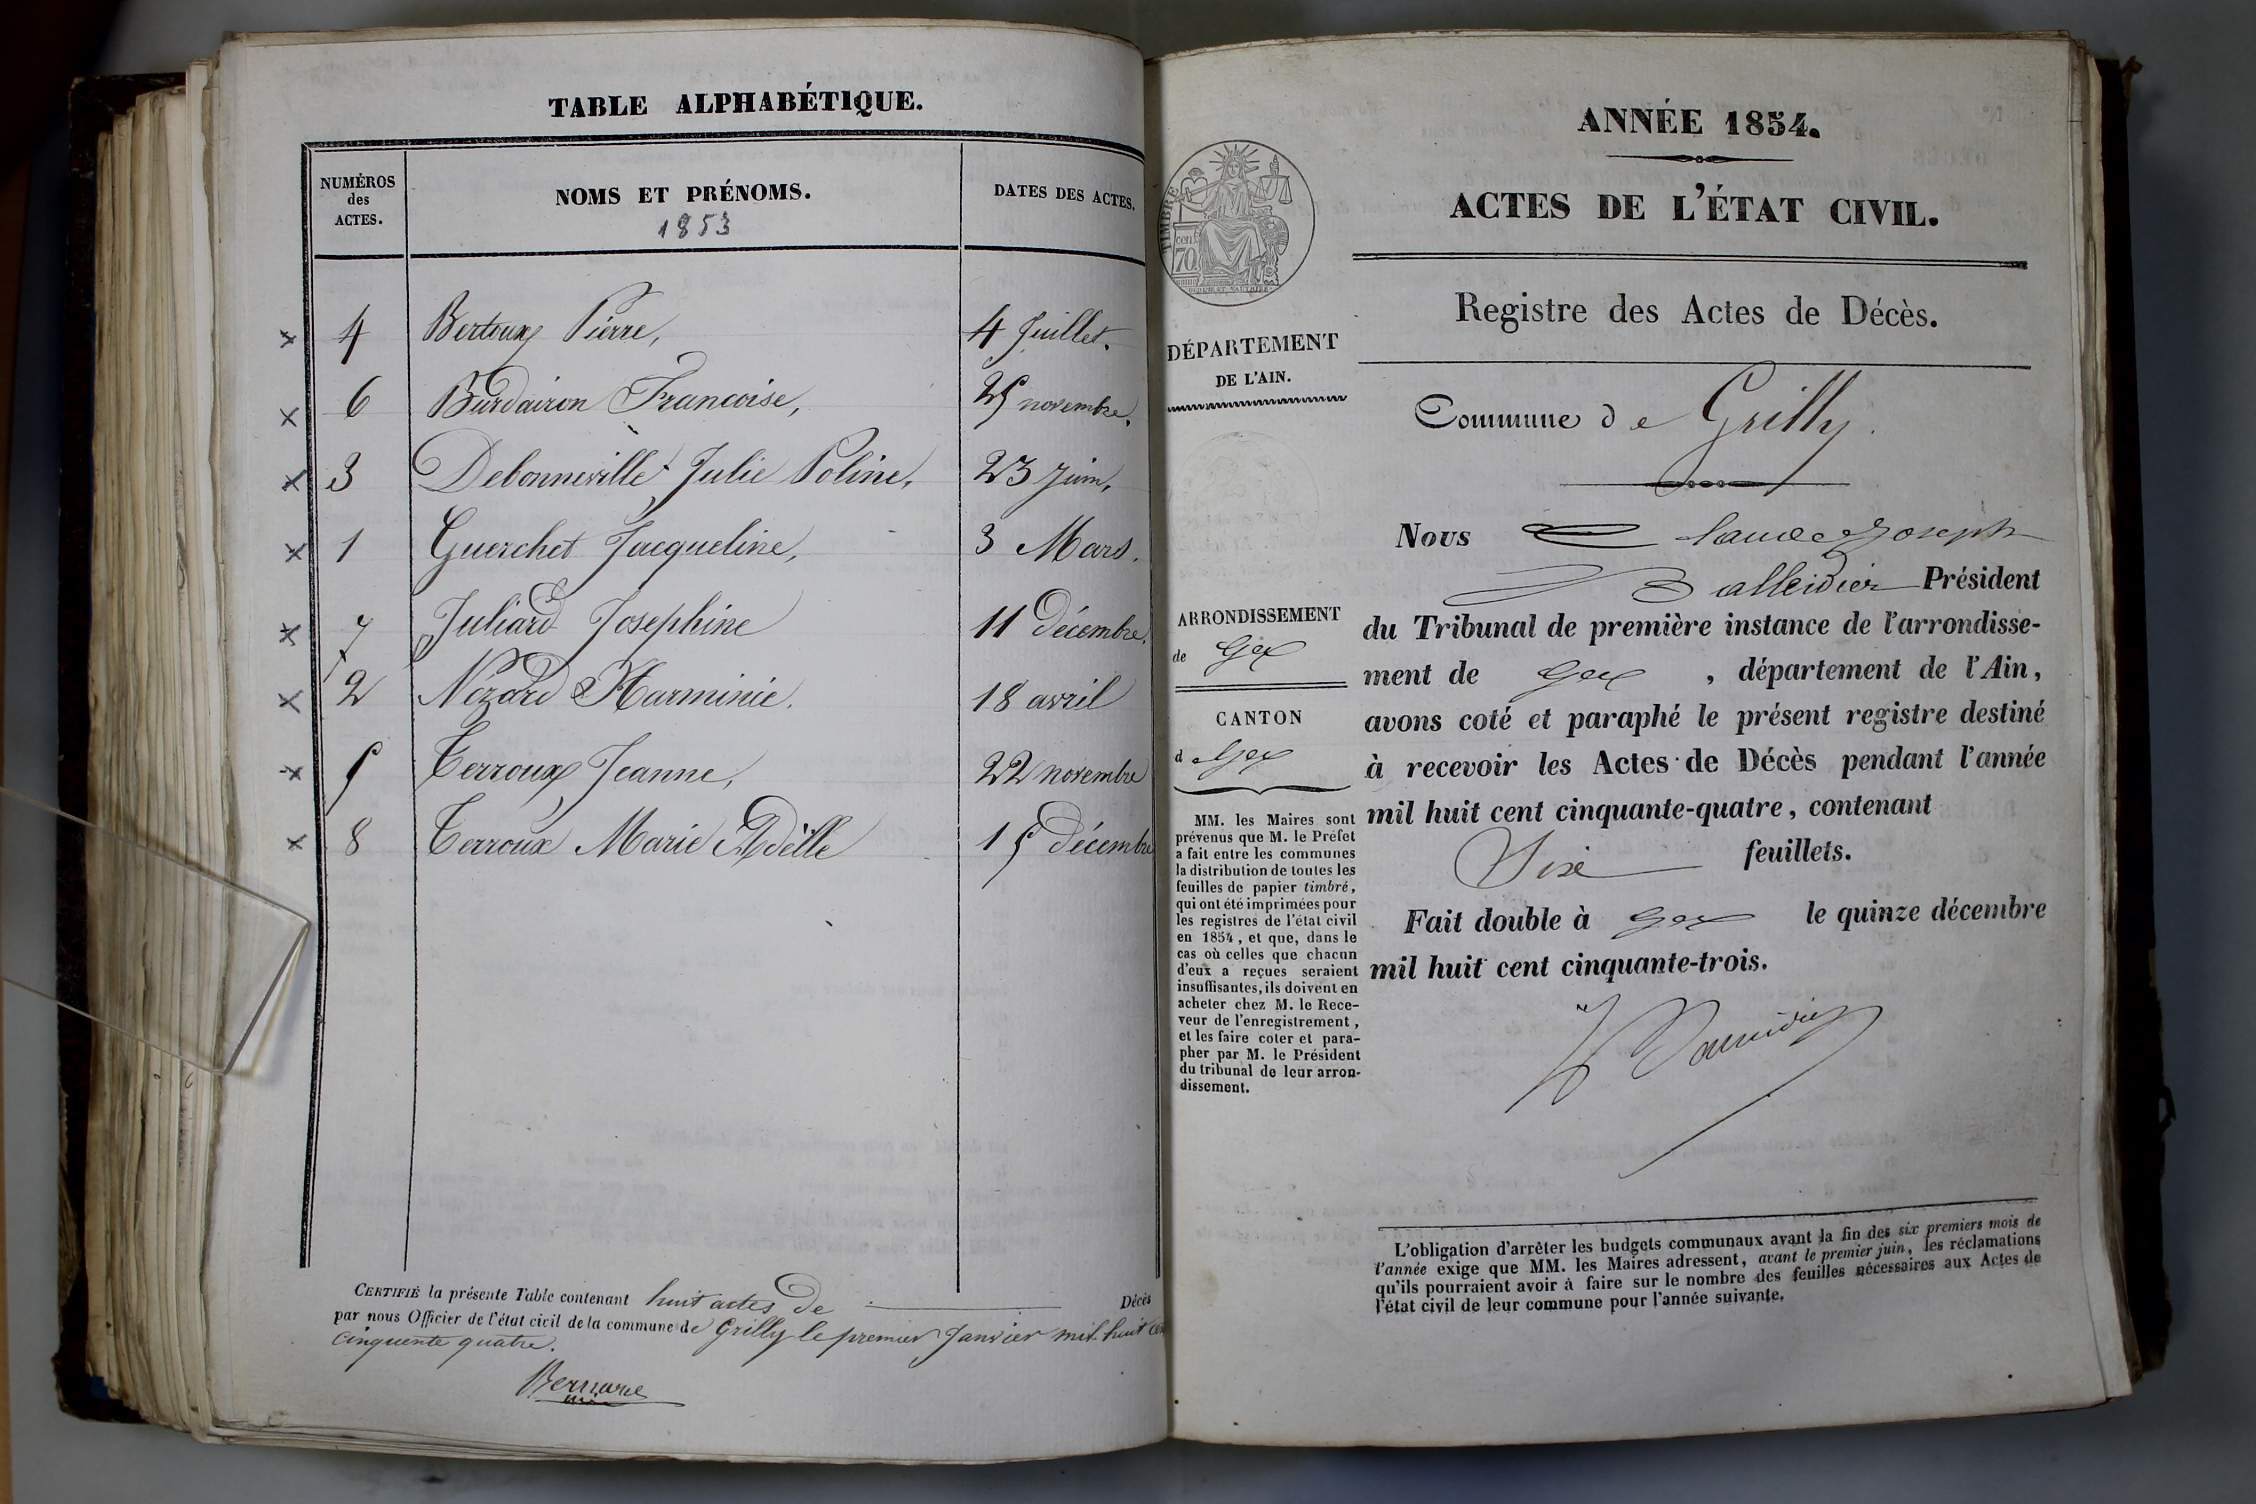 TABLE ALPHABÉTIQUE.
NUMÉROS
des
ACTES.
NOMS ET PRÉNOMS.
1853
DATES DES ACTES.
4 Bertoux Pierre, 4 Juillet.
6 Burdairon Francoise, 25 novembre.
3 Debonneville Julie Poline, 23 juin,
1 Guerchet Jacqueline, 3 Mars.
7 Juliard Josephine 11 décembre.
2 Nezard Harminie. 18 avril
5 Terroux Jeanne, 22 novembre
8 Terroux Marie Adèlle 15 décembre
CERTIFIÉ la présente Table contenant huit actes de Décès
par nous Officier de l'état civil de la commune de Grilly le premier Janvier mil huit cen
cinquente quatre.
Bernard
ANNÉE 1854.
ACTES DE L'ÉTAT CIVIL.
TIMBRE
cen.
70
Registre des Actes de Décès.
DÉPARTEMENT
DE L'AIN.
Commune de Grilly.
Nous Claude Joseph
Balleidier Président
du Tribunal de première instance de l'arrondisse-
ment de Gex, département de l'Ain,
avons coté et paraphé le présent registre destiné
à recevoir les Actes de Décès pendant l'année
mil huit cent cinquante-quatre, contenant
Six feuillets.
Fait double à Gex le quinze décembre
mil huit cent cinquante-trois.
ARRONDISSEMENT
de Gex
CANTON
de Gex
MM. les Maires sont
prévenus que M. le Préfet
a fait entre les communes
la distribution de toutes les
feuilles de papier timbré,
qui ont été imprimées pour
les registres de l'état civil
en 1854, et que, dans le
cas où celles que chacun
d'eux a reçues seraient
insuffisantes, ils doivent en
acheter chez M. le Rece-
veur de l'enregistrement,
et les faire coter et para-
pher par M. le Président
du tribunal de leur arron-
dissement.
L'obligation d'arrêter les budgets communaux avant la fin des six premiers mois de
l'année exige que MM. les Maires adressent, avant le premier juin, les réclamations
qu'ils pourraient avoir à faire sur le nombre des feuilles nécessaires aux Actes de
l'état civil de leur commune pour l'année suivante.